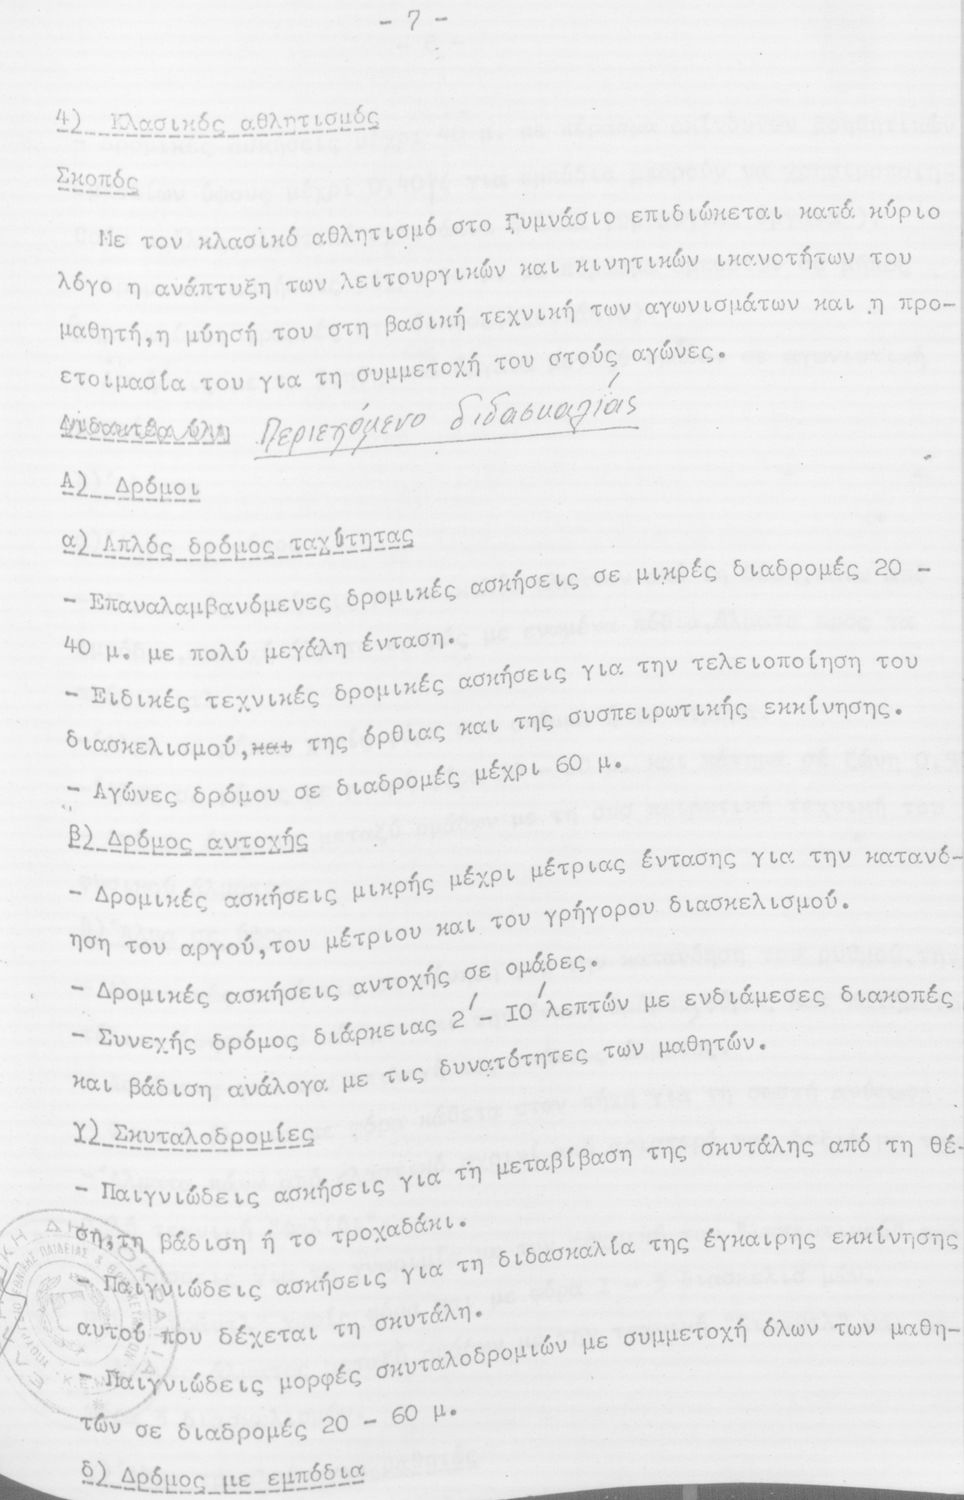 - 7 -
4) Κλασικός αθλητισμός
Σκοπός
Με τον κλασικό αθλητισμό στο Γυμνάσιο επιδιώκεται κατά κύριο
λόγο η ανάπτυξη των λειτουργικών και κινητικών ικανοτήτων του
μαθητή,η μύησή του στη βασική τεχνική των αγωνισμάτων και η προ-
ετοιμασία του για τη συμμετοχή του στούς αγώνες.
Διδακτέα ύλη Περιεχόμενο διδασκαλίας
Α) Δρόμοι
α) Απλός δρόμος ταχύτητας
- Επαναλαμβανόμενες δρομικές ασκήσεις σε μικρές διαδρομές 20 -
40 μ. με πολύ μεγάλη ένταση.
- Ειδικές τεχνικές δρομικές ασκήσεις για την τελειοποίηση του
διασκελισμού,και της όρθιας και της συσπειρωτικής εκκίνησης.
- Αγώνες δρόμου σε διαδρομές μέχρι 60 μ.
β) Δρόμος αντοχής
- Δρομικές ασκήσεις μικρής μέχρι μέτριας έντασης για την κατανό-
ηση του αργού,του μέτριου και του γρήγορου διασκελισμού.
- Δρομικές ασκήσεις αντοχής σε ομάδες.
- Συνεχής δρόμος διάρκειας 2΄- 10΄λεπτών με ενδιάμεσες διακοπές
και βάδιση ανάλογα με τις δυνατότητες των μαθητών.
γ) Σκυταλοδρομίες
- Παιγνιώδεις ασκήσεις για τη μεταβίβαση της σκυτάλης από τη θέ-
ση,τη βάδιση ή το τροχαδάκι.
- Παιγνιώδεις ασκήσεις για τη διδασκαλία της έγκαιρης εκκίνησης
αυτού που δέχεται τη σκυτάλη.
- Παιγνιώδεις μορφές σκυταλοδρομιών με συμμετοχή όλων των μαθη-
τών σε διαδρομές 20 - 60 μ.
δ) Δρόμος με εμπόδια